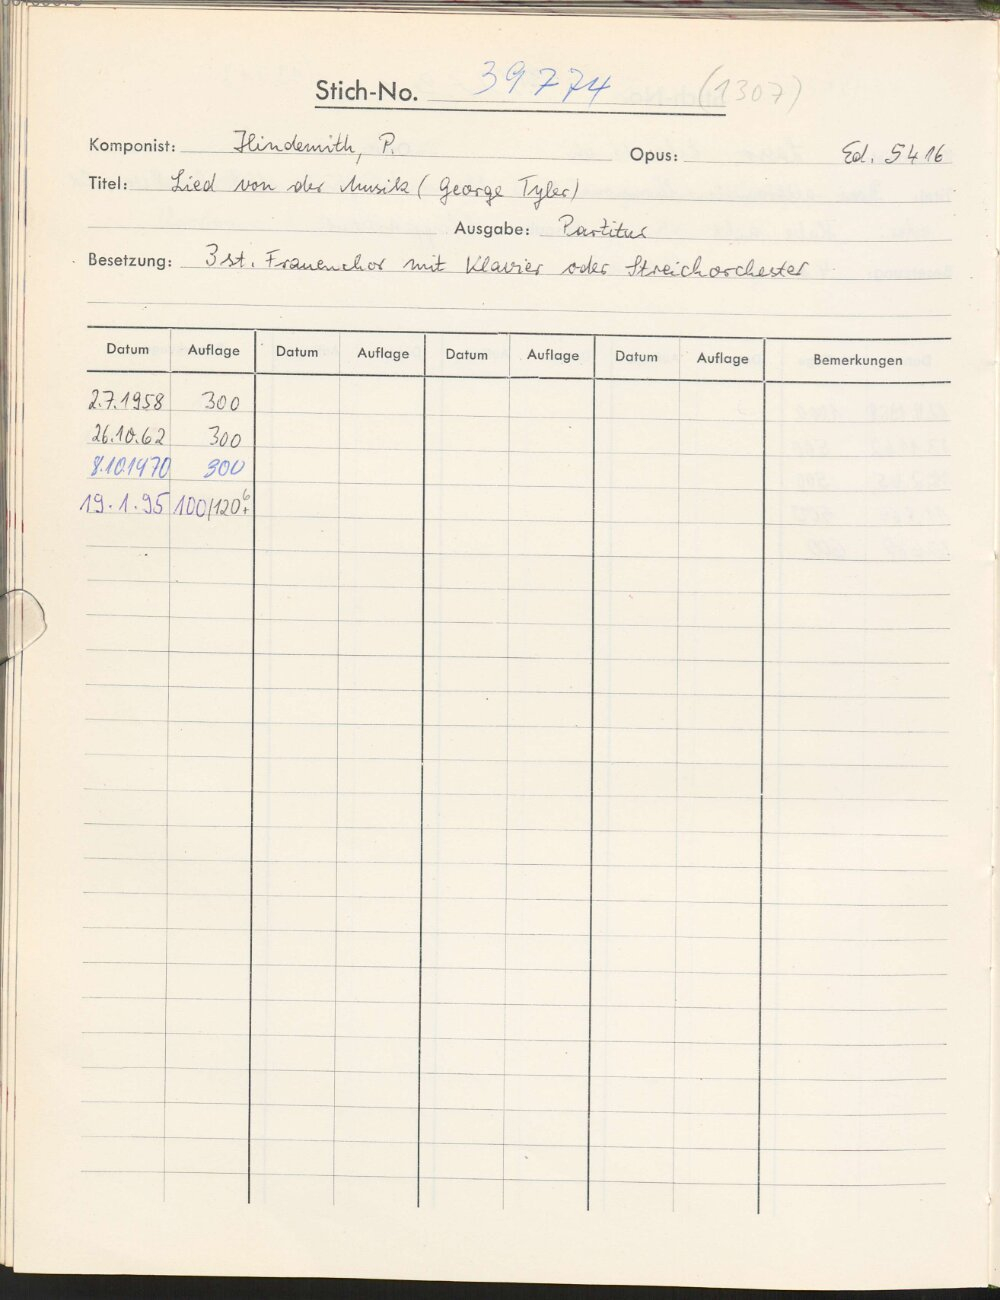 Stich-No. 39774 (1307)
Komponist: Hindemith, P. Opus: Ed. 5416
Titel: Lied von der Musik (George Tyler)
Ausgabe: Partitur
Besetzung: 3st. Frauenchor mit Klavier oder Streichorchester
Datum Auflage Datum Auflage Datum Auflage Datum Auflage Bemerkungen
2.7.1958 300
26.10.62 300
8.10.1970 300
19.1.95 100/120